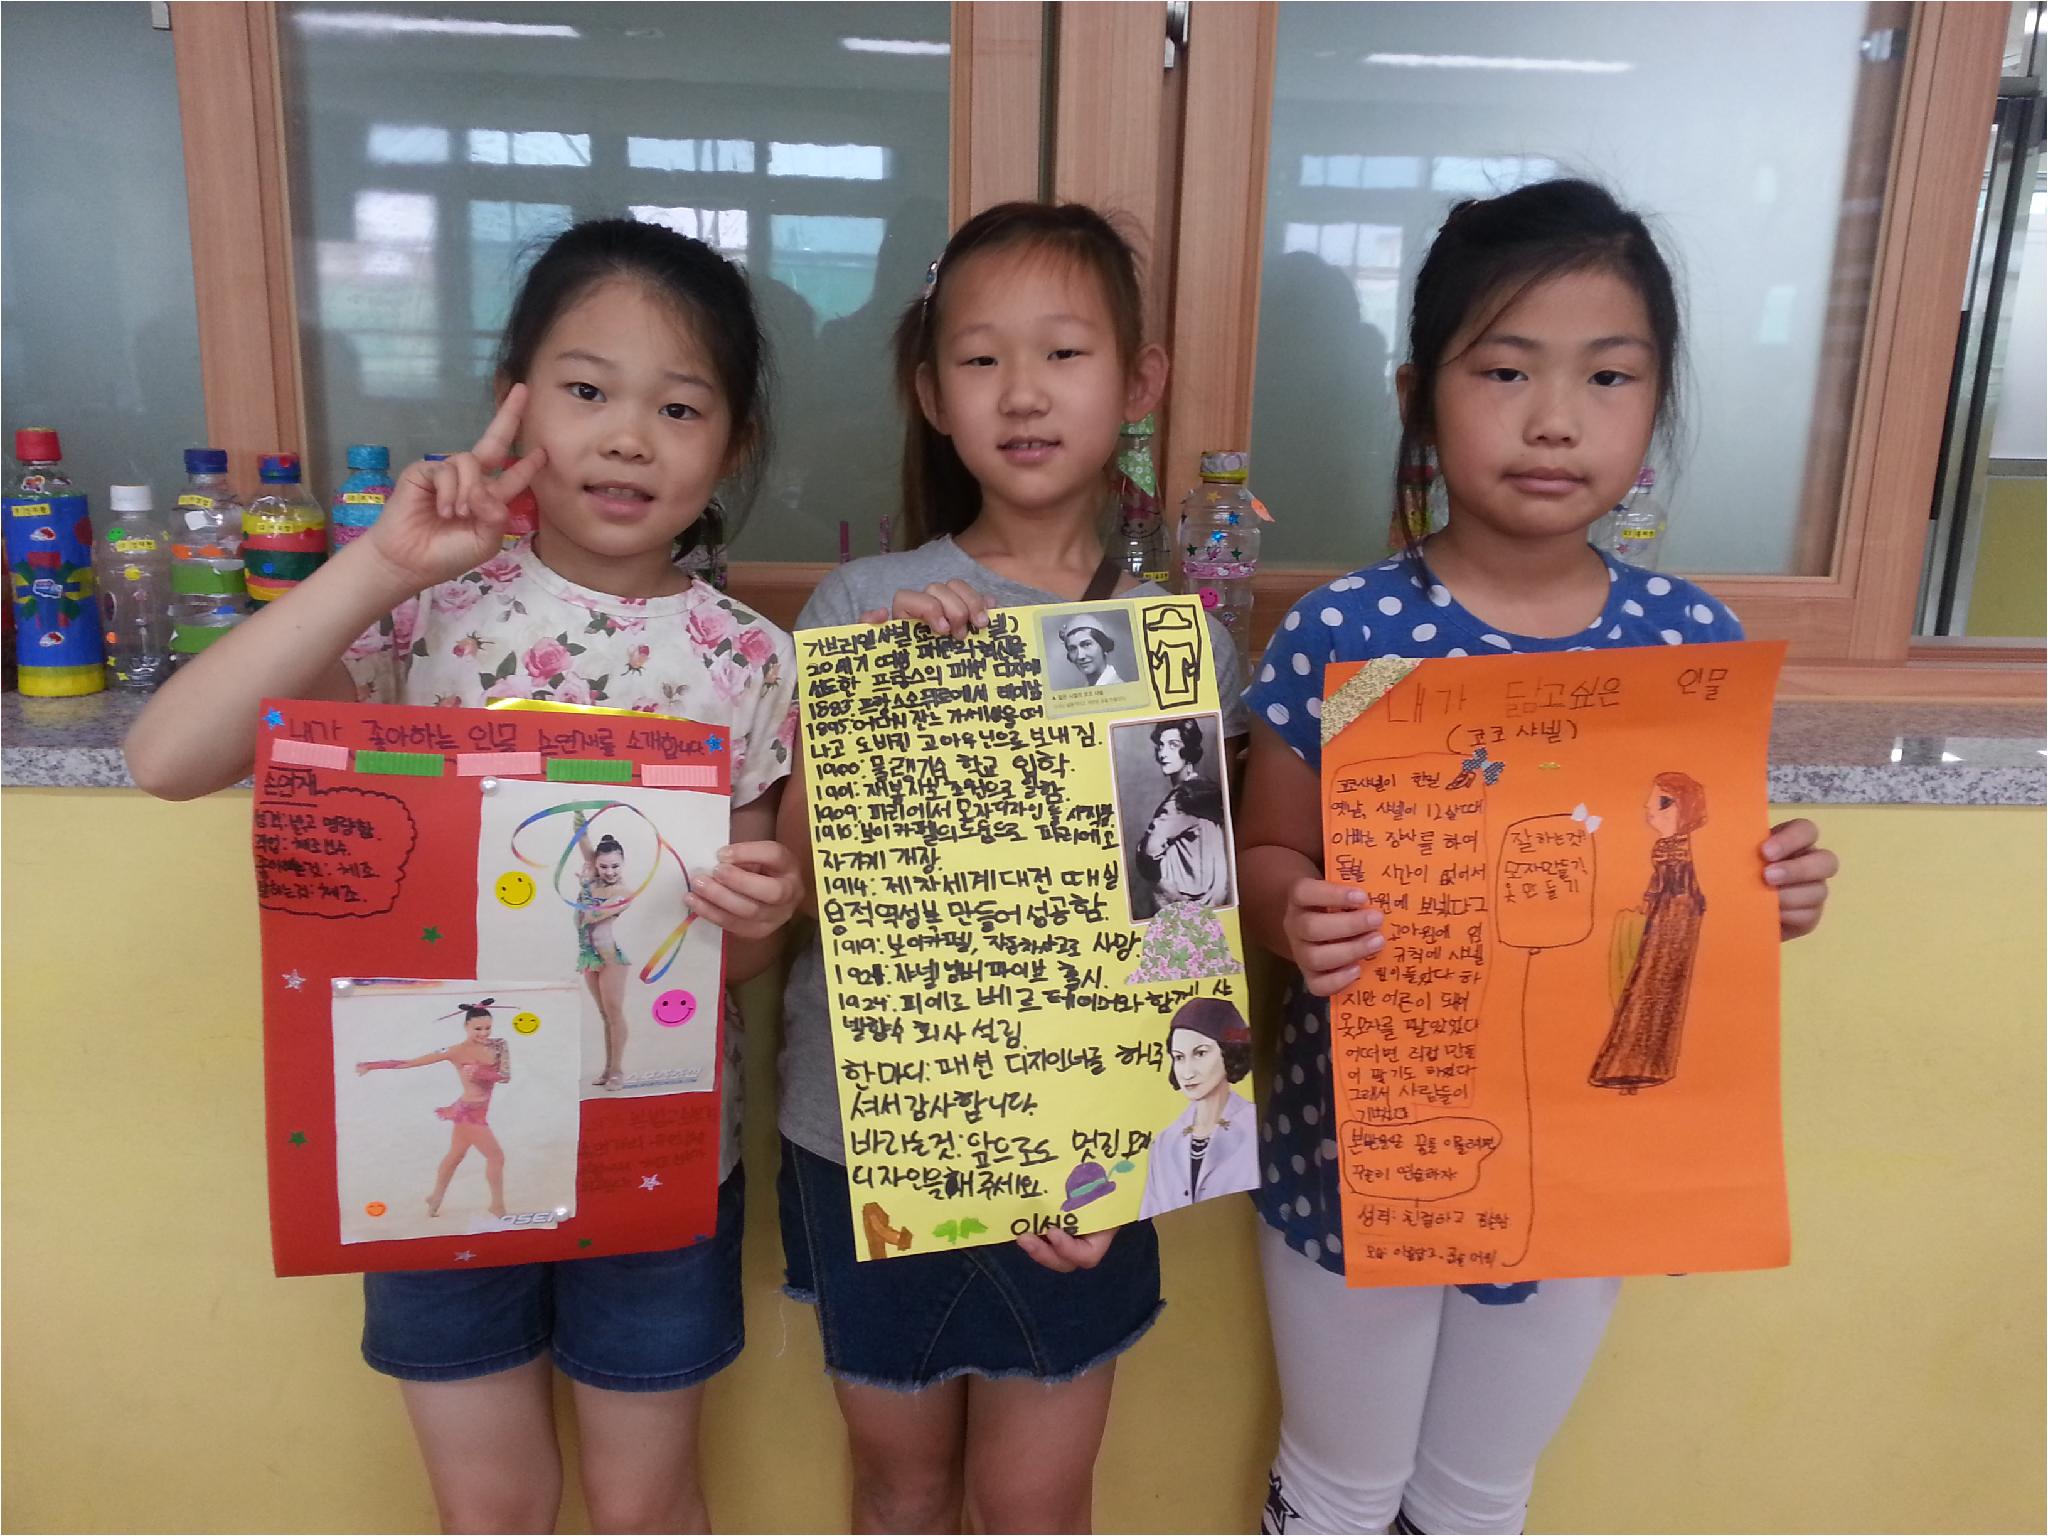 내가 좋아하는 인물 손연재를 소개합니다.
손연재
성격: 밝고 명랑함.
직업: 체조선수.
좋아하는것: 체조.
잘하는것: 체조.
가브리엘 샤넬
20세기 여성 패션의 혁신을
선도한 프랑스의 패션 디자이너
1883: 프랑스 소뮈르에서 태어남
1895: 어머니 잔느 가 세상을 떠
나고 오바진 고아원으로 보내짐.
1900: 물랭기숙 학교 입학.
1901: 재봉사로 일함.
1909: 파리에서 모자디자인을 시작함.
1910: 보이 카펠의 도움으로 파리에 모
자가게 개장.
1914: 제 차세계 대전 때 실
용적 여성복 만들어 성공함.
1919: 보이카펠, 자동차사고로 사망.
1921: 샤넬 넘버 파이브 출시.
1924: 피에르 베르 테이머와 함께 샤
넬향수 회사 설립.
한마디: 패션 디자이너를 해주
셔서 감사합니다.
바라는것: 앞으로도 멋진 모자
디자인을 해 주세요.
내가 닮고싶은 인물
(코코 샤넬)
코코샤넬이 한일
옛날, 샤넬이 12살때
아빠는 장사를 하여
돌볼 시간이 없어서
원에 보냈다 그
고아원에 엄
규칙에 샤넬
힘이들었다 하
지만 어른이 되어
옷모자를 팔았었다
어쩌면 직접 만들
어 팔기도 하였다
그래서 사람들이
기뻤다
잘하는것:
모자만들기,
옷 만들기
본받을점 꿈을 이룰려면
꾸준히 연습하자
성격: 친절하고